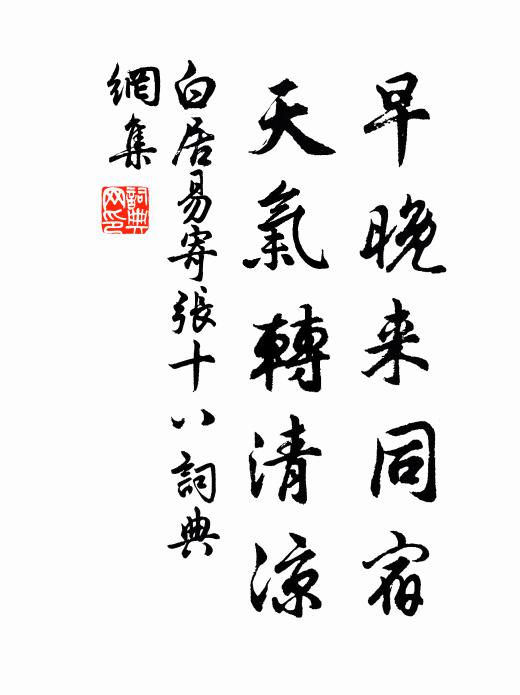 早晚来同宿
天氣轉清涼
白居易寄張十八詞典
網集
詞典網印